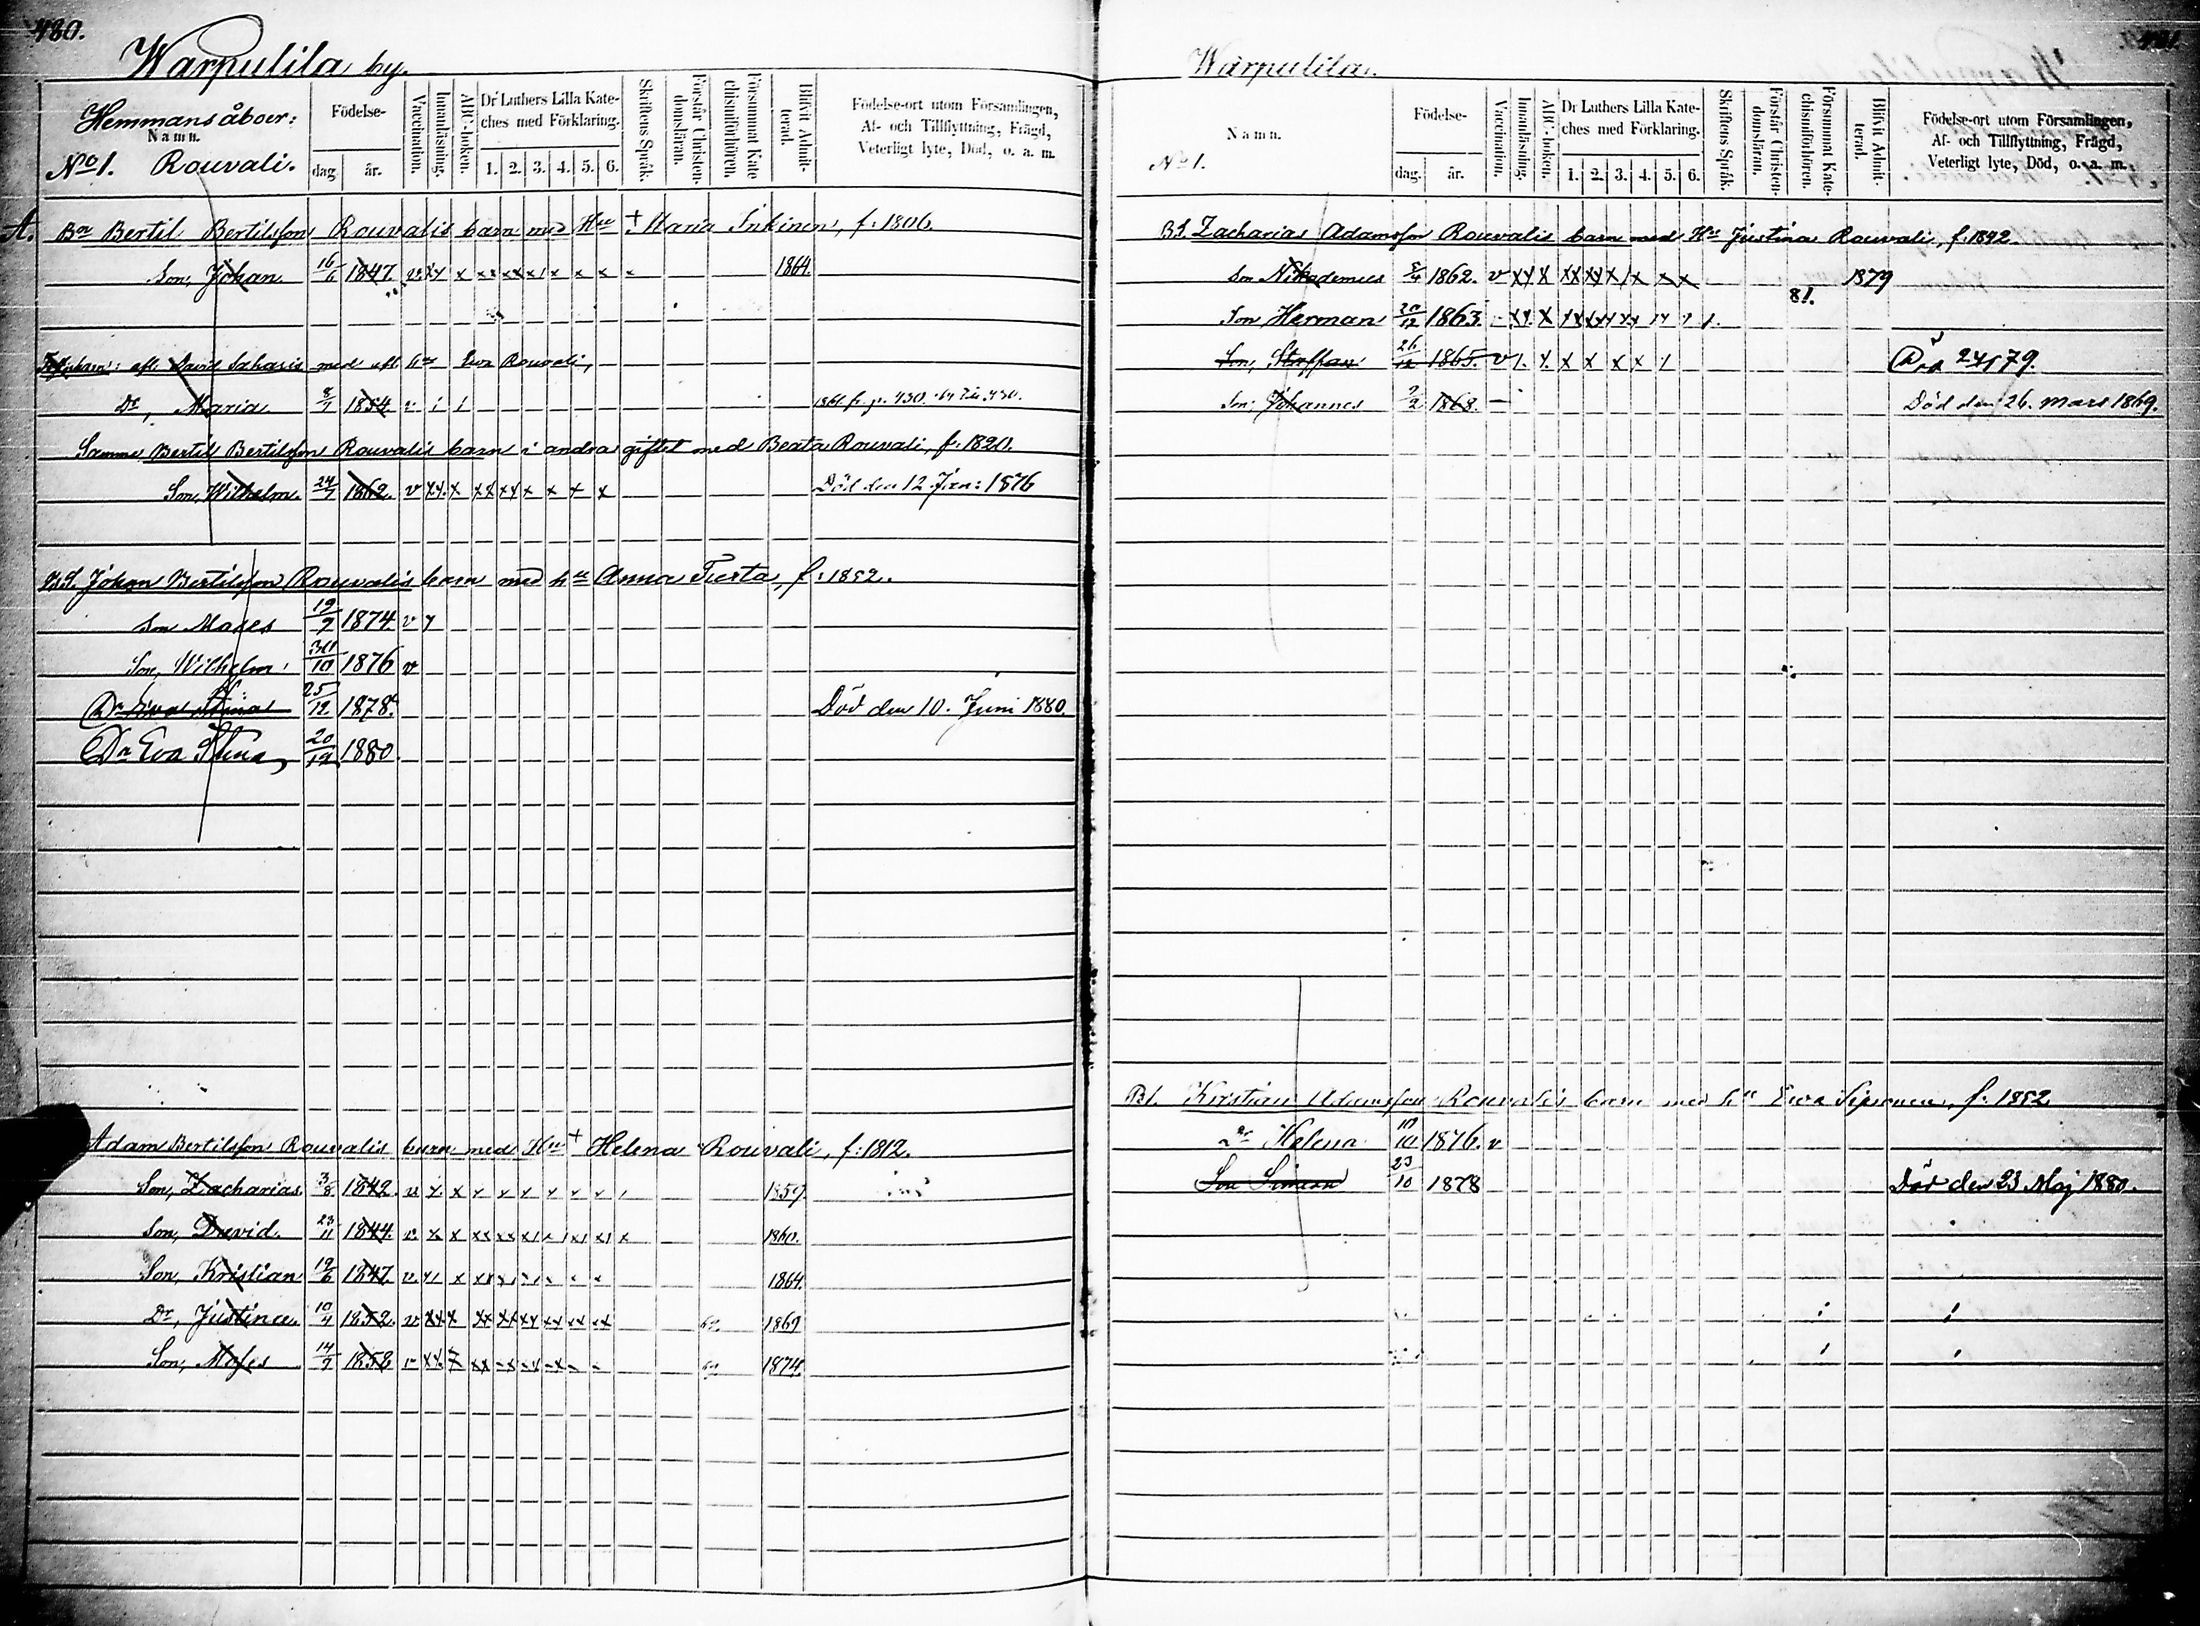 480.
Warpulila by.
Hemmansåboer:
Namn.
No 1. Rouvali.
Födelse-
dag.
år.
Vaccination.
Innanläsning.
ABC-boken.
Dr Luthers Lilla Kate-
ches med Förklaring.
1. 2. 3. 4. 5. 6.
Skriftens Språk.
Förstår Christen-
domsläran.
Försummat Kate-
chismiförhören.
Blifvit Admit-
terad.
Födelse-ort utom Församlingen,
Af- och Tillflyttning, Frägd,
Veterligt lyte, Död, o. a. m.
A. Bn Bertil Bertilsson Rouvalis barn med Hu + Maria Inkinen, f: 1806.
Son, Johan 16/6 1847. 1864.
David Sakaris med Ewa Rouvali,
Dr, Maria 8/7 1854 v
Samme Bertil Bertilsson Rouvalis barn i andra giftet med Beata Rouvali, f: 1820.
Son, Wilhelm. 24/7 1862. v Död den 12 Jan: 1876
B.S. Johan Bertilsson Rouvalis barn med hu Anna Turta, f: 1852.
Son Moses 19/7 1874 v
Son, Wilhelm 30/10 1876 v
Dr Eva Stina 25/12 1878. Död den 10. Juni 1880.
Dr Eva Stina, 20/12 1880.
Adam Bertilsson Rouvalis barn med Hu + Helena Rouvali, f: 1812.
Son, Zacharias 3/8 1842. v 1859.
Son, David. 23/11 1844. v 1860.
Son, Kristian 19/6 1847. v 1864.
Dr, Justina 10/4 1852. v 1869
Son, Moses 14/7 1858 1874.
481.
Warpulila.
Namn.
No 1.
Födelse-
dag.
år.
Vaccination.
Innanläsning.
ABC-boken.
Dr Luthers Lilla Kate-
ches med Förklaring.
1. 2. 3. 4. 5. 6.
Skriftens Språk.
Förstår Christen-
domsläran.
Försummat Kate-
chismiförhören.
Blifvit Admit-
terad.
Födelse-ort utom Församlingen,
Af- och Tillflyttning, Frägd,
Veterligt lyte, Död, o. a. m.
B.S. Zacharias Adamsson Rouvalis barn med Hu Justina Rouvali, f: 1842.
Son Nikodemus 5/4 1862. v 1879
81.
Son Herman 20/12 1863.
Son, Staffan 26/12 1865. v Död 24/1 79.
Son, Johannes 7/2 1868. Död den 26. Mars 1869.
B.S. Kristian Adamsson Rouvalis barn med hu Ewa Siponen, f: 1852.
Dr Helena 10/10 1876. v
Son Simon 23/10 1878 Död den 23 Maj 1880.